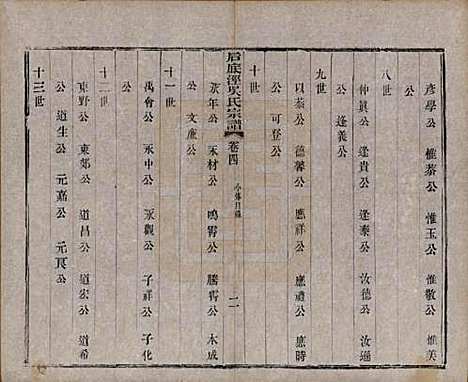 彥學公　惟蓁公　惟玉公　惟敬公　惟美
八世
仲眞公　逢貴公　逢泰公　汝德公　汝遜
公　逢義公
九世
以泰公　德馨公　應祥公　應禮公　應時
公　可登公
十世
后底涇吳氏宗譜　卷四　小傳目錄　二
景年公　禾材公　鳴霄公　騰霄公　木成
公　文慶公
十一世
禹會公　永中公　永觀公　子祥公　子化
公
十二世
東野公　東郊公　道昌公　道宏公　道希
公　道生公　元嘉公　元良公
十三世